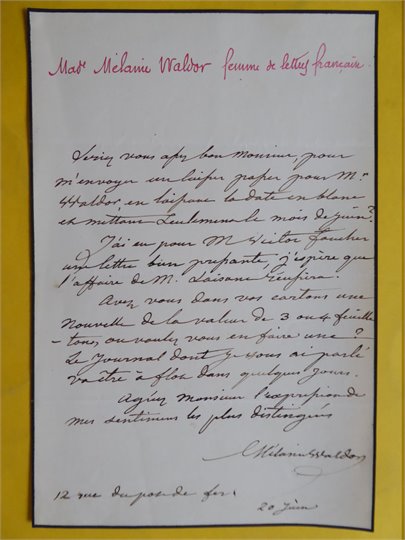 Made Mélanie Waldor femme de lettres française.
Seriez vous assez bon Monsieur, pour
m'envoyer un laisser passer pour Mr
Waldor, en laissant la date en blanc
et mettant seulement le mois de juin?
J'ai eu pour M Victor Foucher
une lettre bien pressante, j'espère que
l'affaire de M. réussira.
Avez vous dans vos cartons une
nouvelle de la valeur de 3 ou 4 feuille
-tons, ou voulez vous en faire une?
Le Journal dont je vous ai parlé
va être à flot dans quelques jours.
Agréez Monsieur l'expression de
mes sentimens les plus distingués
Mélanie Waldor
12 rue du pot de fer.
20 juin